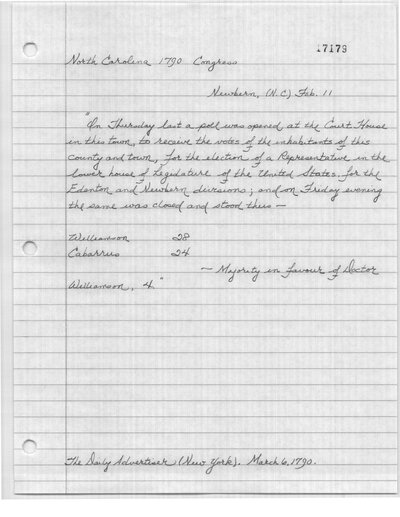 17179
North Carolina 1790 Congress
Newbern, (N.C.) Feb. 11
"On Thursday last a poll was opened at the Court House
in this town, to receive the votes of the inhabitants of this
county and town, for the election of a Representative in the
lower house of Legislature of the United States, for the
Edenton and Newbern divisions; and on Friday evening
the same was closed and stood thus —
Williamson 28
Cabarrus 24
— Majority in favour of Doctor
Williamson, 4."
The Daily Advertiser (New York). March 6, 1790.